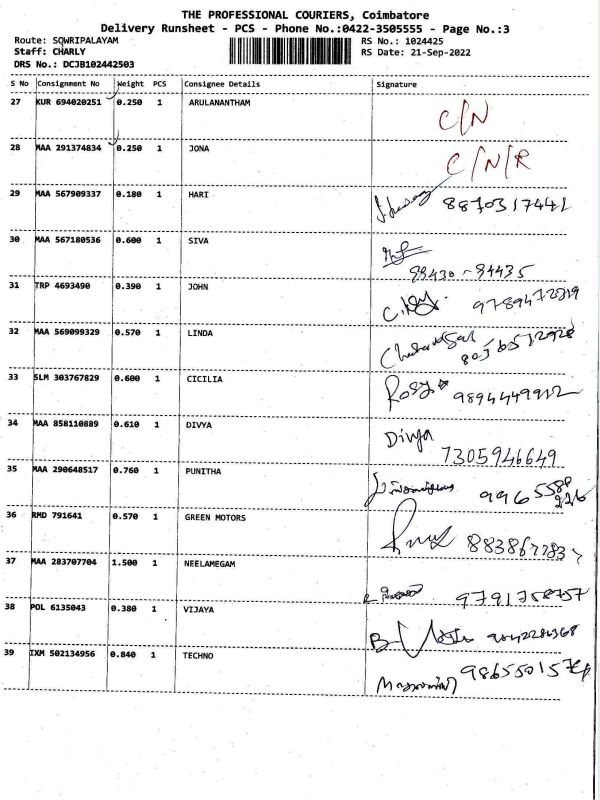 THE PROFESSIONAL COURIERS, Coimbatore
Delivery Runsheet - PCS - Phone No.:0422-3505555 - Page No.:3
Route: SOWRIPALAYAM RS No.: 1024425
Staff: CHARLY RS Date: 21-Sep-2022
DRS No.: DCJB102442503
S No Consignment No Weight PCS Consignee Details Signature
27 KUR 694020251 0.250 1 ARULANANTHAM C/N
28 MAA 291374834 0.250 1 JONA C/N/R
29 MAA 567909337 0.180 1 HARI 8870317441
30 MAA 567180536 0.600 1 SIVA
98430-84435
31 TRP 4693490 0.390 1 JOHN
32 MAA 569099329 0.570 1 LINDA
33 SLM 303767829 0.600 1 CICILIA Rosy
34 MAA 858110889 0.610 1 DIVYA Divya
7305946649
35 MAA 290648517 0.760 1 PUNITHA
36 RMD 791641 0.570 1 GREEN MOTORS
37 MAA 283707704 1.500 1 NEELAMEGAM 9791758757
38 POL 6135043 0.380 1 VIJAYA
39 IXM 502134956 0.840 1 TECHNO